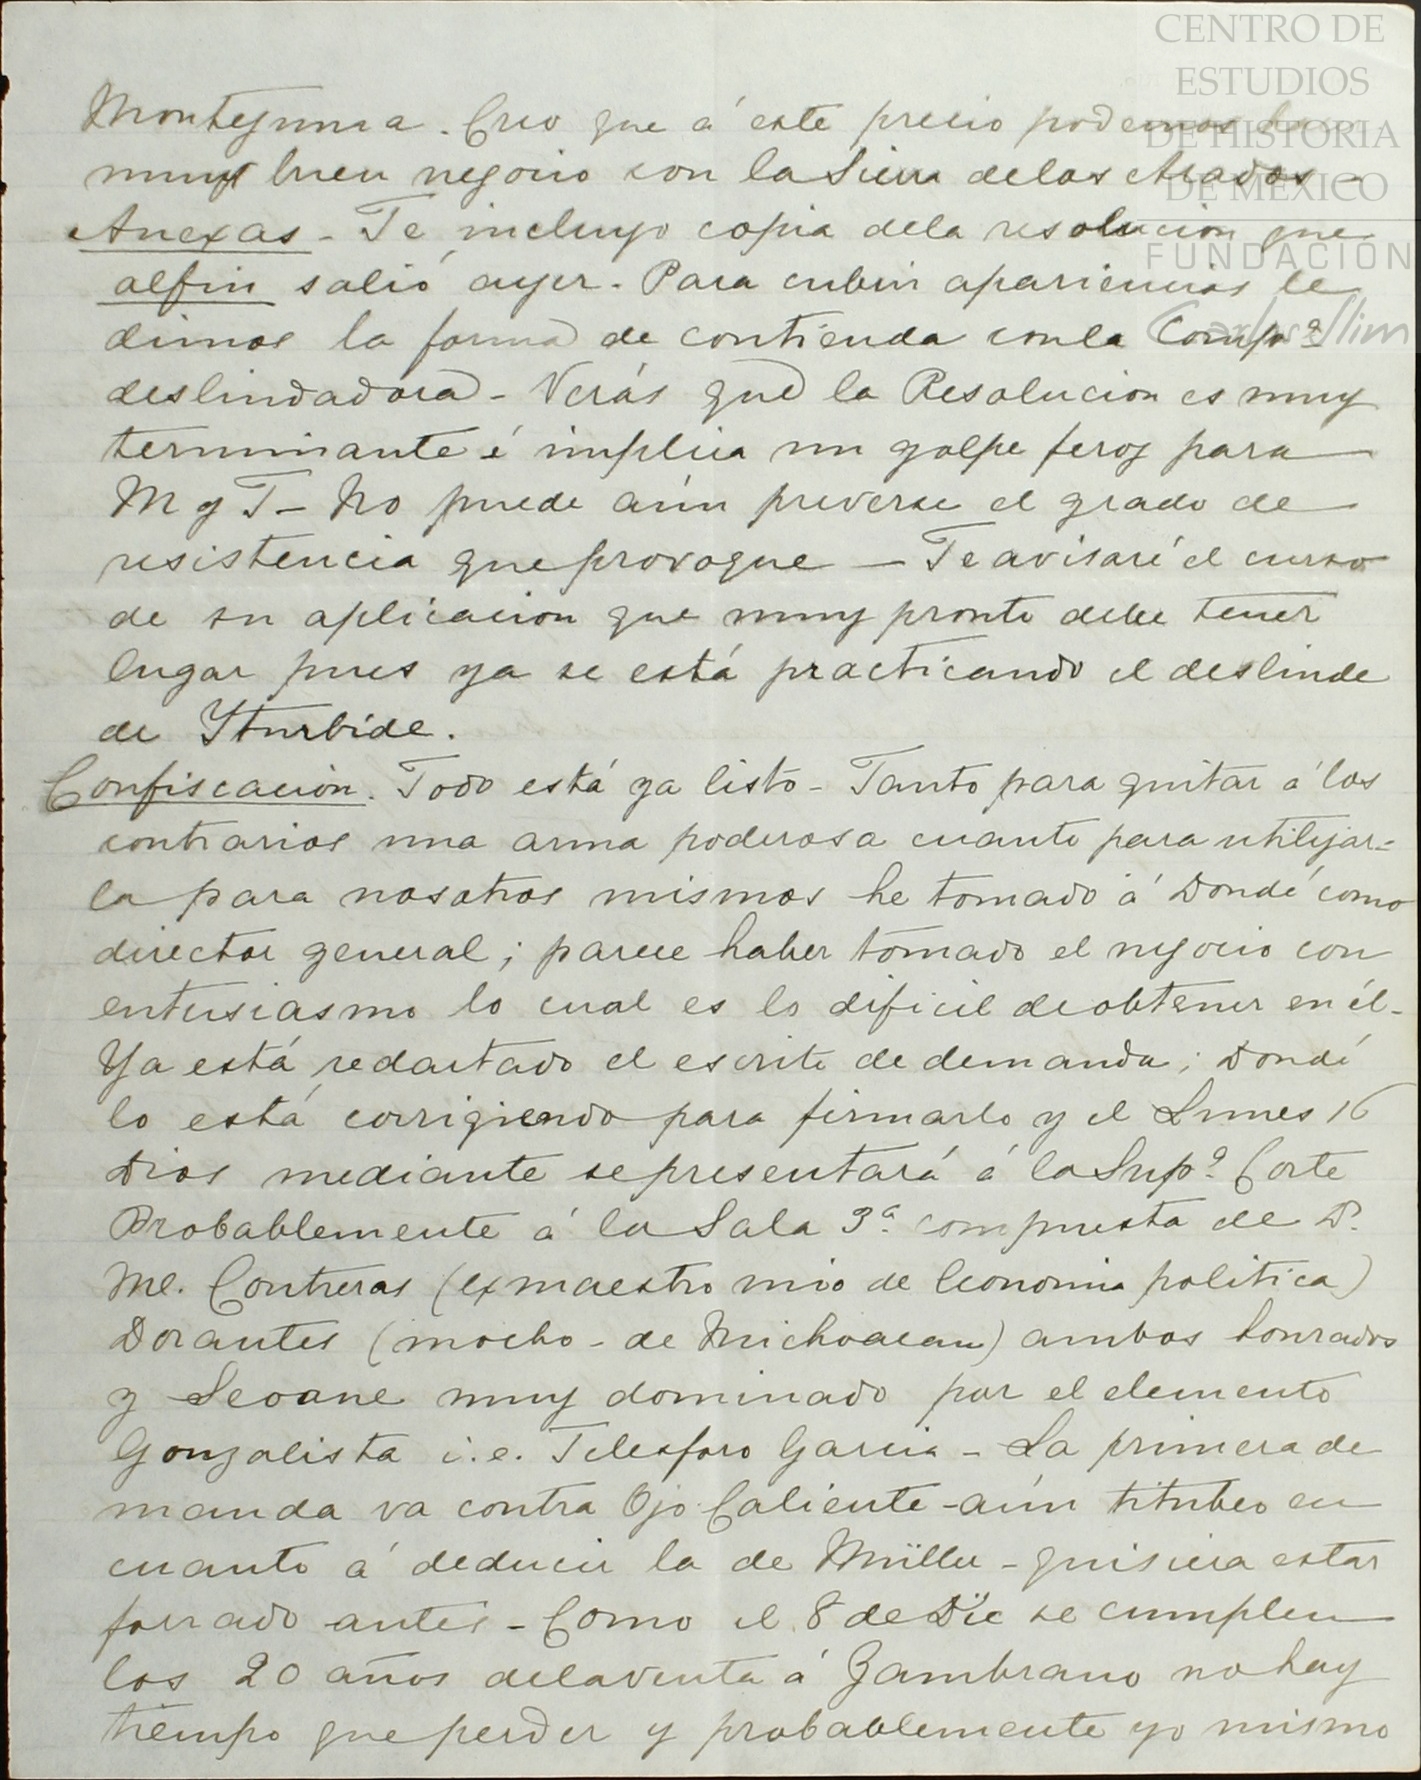 CENTRO DE
ESTUDIOS
DE HISTORIA
DE MÉXICO
FUNDACIÓN
Carlos Slim
Montezuma. Creo que á este precio podemos hacer
muy buen negocio con la Sierra de los Arados -
Anexas - Te incluyo copia dela resolucion que
alfin salió ayer. Para cubrir apariencias le
dimos la forma de contienda conla Compª
deslindadora - Verás que la Resolucion es muy
terminante é implica un golpe feroz para
M y T - No puede aún preverse el grado de
resistencia que provoque — Te avisaré el curso
de su aplicacion que muy pronto debe tener
lugar pues ya se está practicando el deslinde
de Yturbide.
Confiscacion. Todo está ya listo - Tanto para quitar á los
contrarios una arma poderosa cuanto para utilizar-
la para nosotros mismos he tomado á Dondé como
director general; parece haber tomado el negocio con
entusiasmo lo cual es lo dificil de obtener en él -
Ya está redactado el escrito de demanda; Dondé
lo está corrigiendo para firmarlo y el Lunes 16
Dios mediante se presentará á la Supª Corte
Probablemente á la Sala 3ª compuesta de D.
Ml. Contreras (ex maestro mio de Economia politica)
Dorantes (mocho - de Michoacan) ambos honrados
y Seoane muy dominado por el elemento
Gonzalista i.e. Telesforo Garcia - La primera de
manda va contra Ojo Caliente - aún titubeo en
cuanto á deducir la de Müller - quisiera estar
forrado antes - Como el 8 de Dic se cumplen
los 20 años dela venta á Zambrano no hay
tiempo que perder y probablemente yo mismo